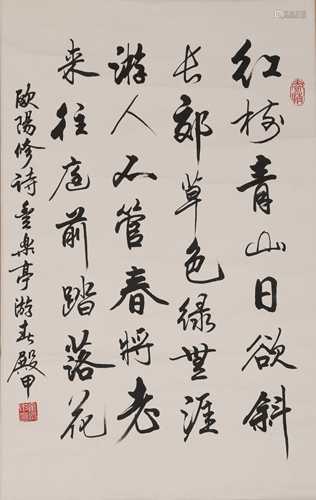 红树青山日欲斜
长郊草色绿无涯
游人不管春将老
来往庭前踏落花
欧阳修诗丰乐亭游春殿甲